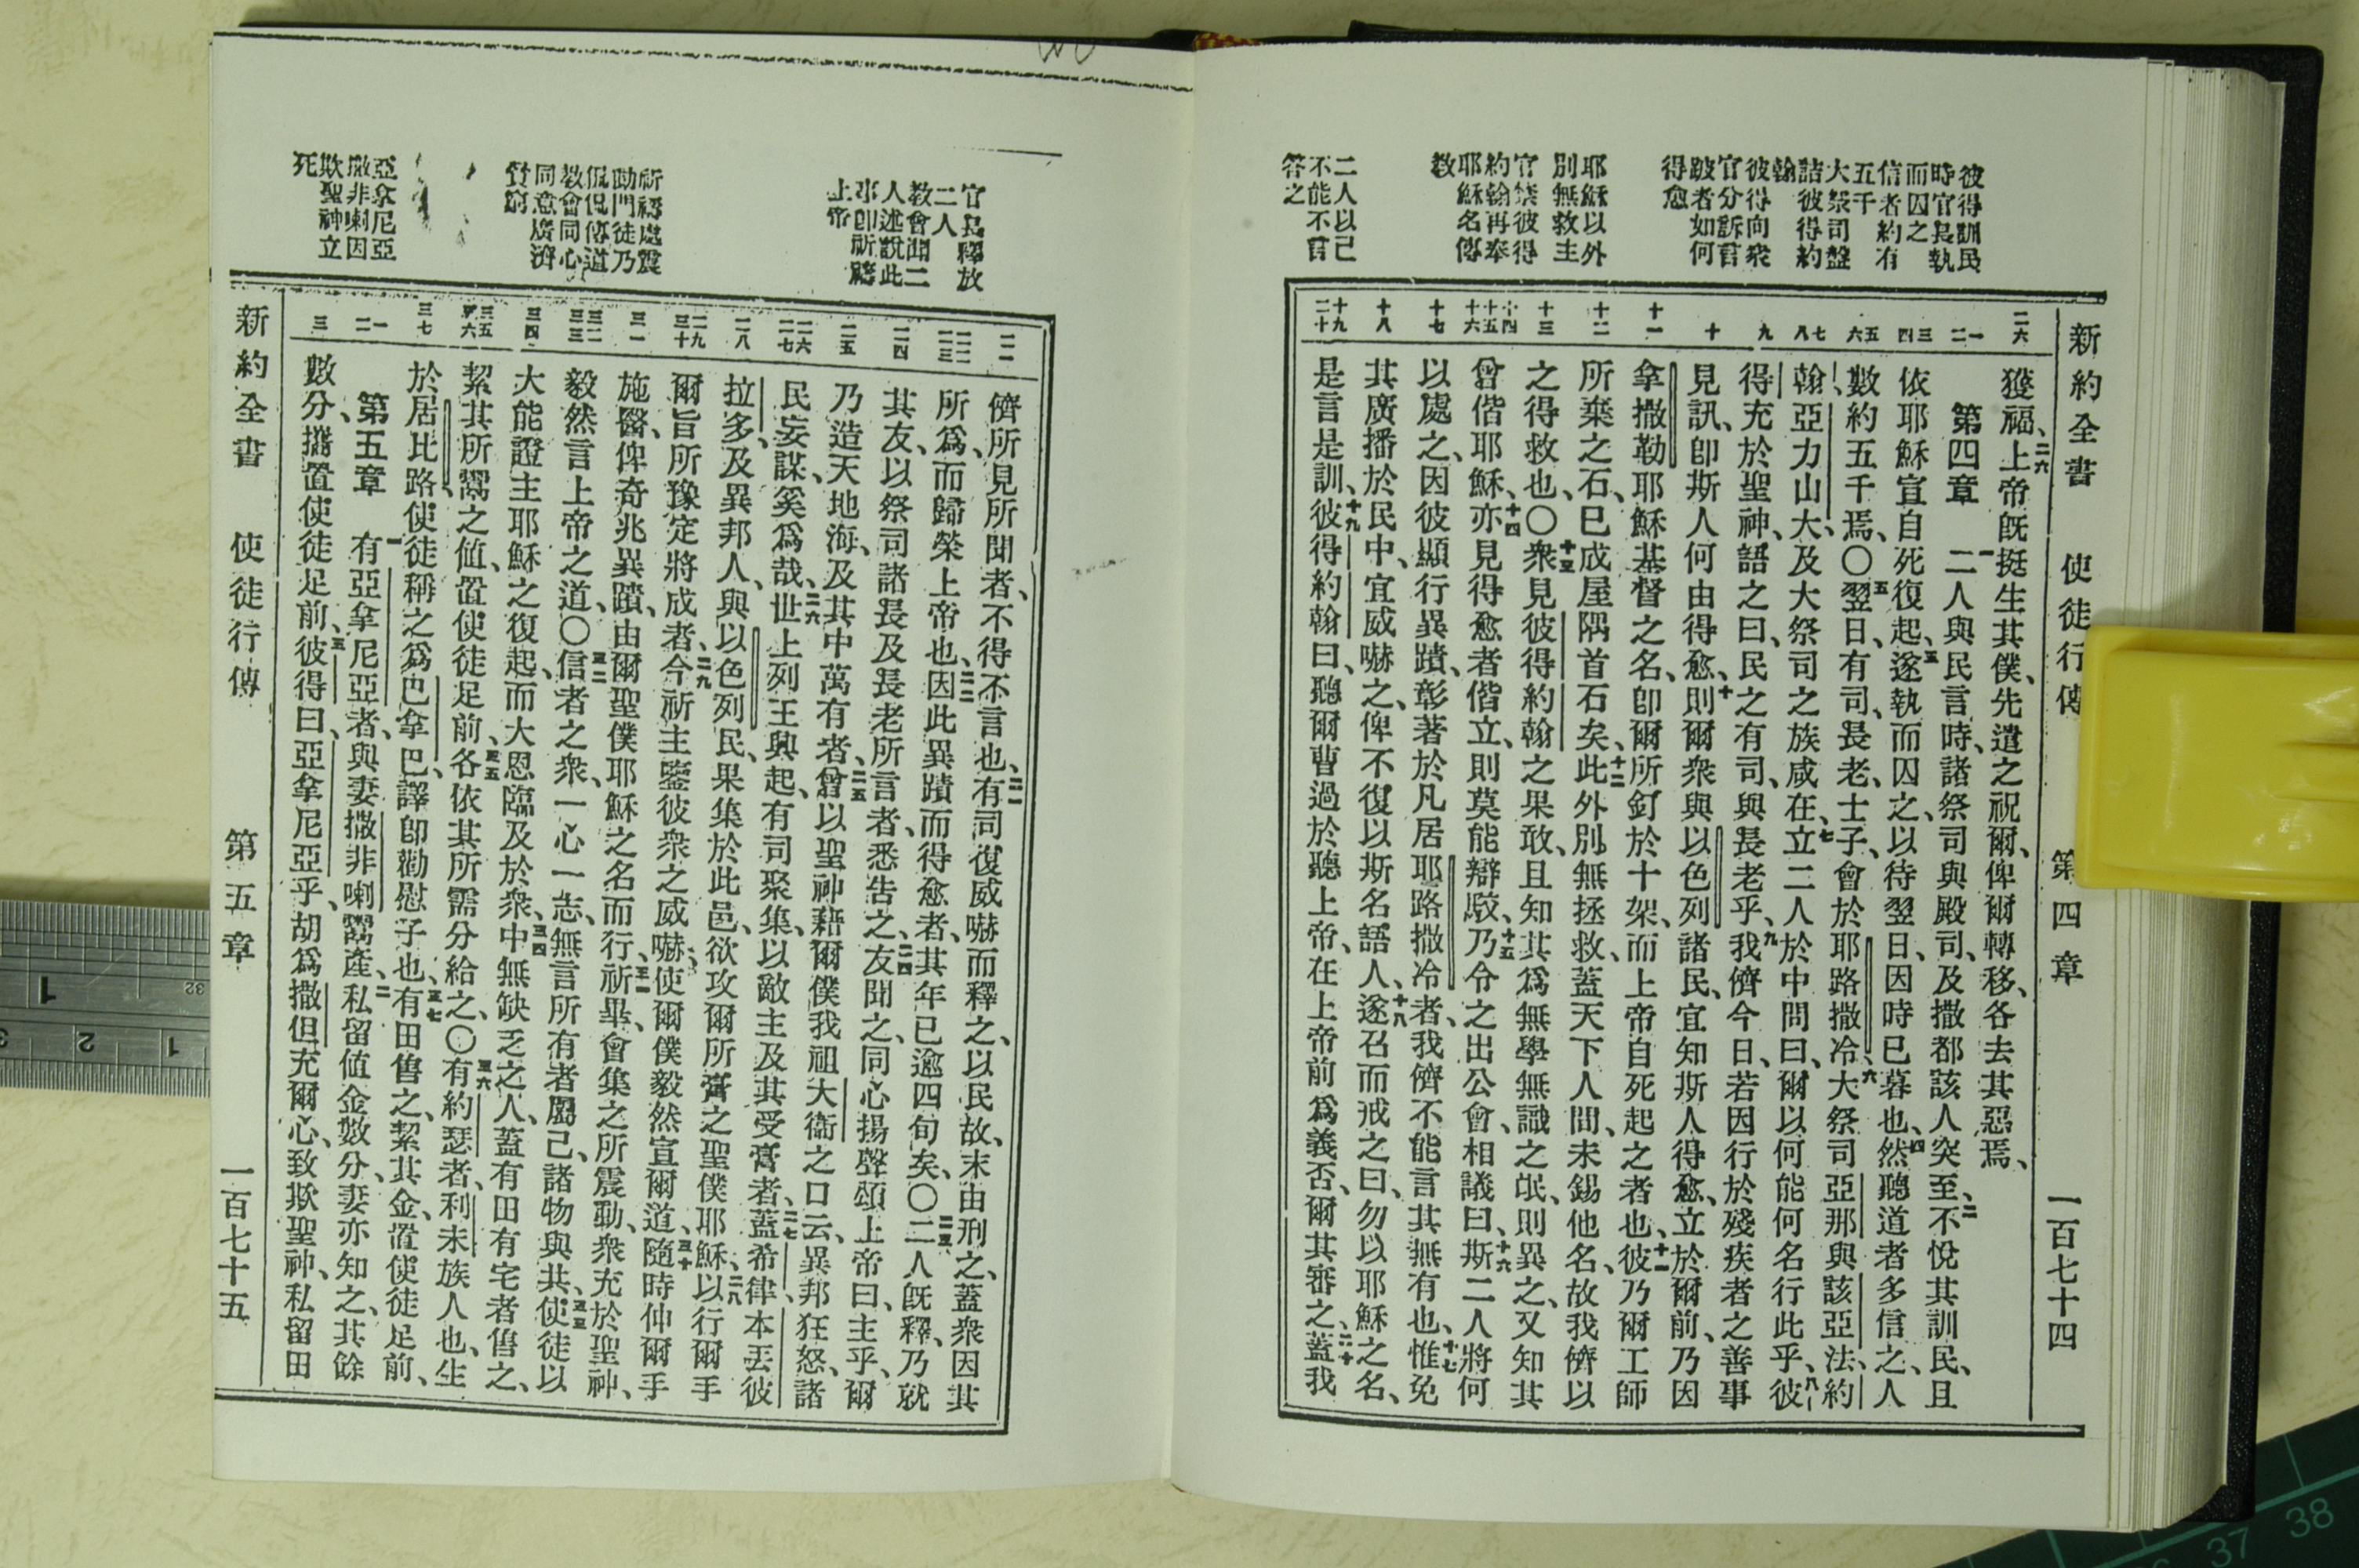 新約全書 使徒行傳 第四章 一百七十四
彼得訓民
時官長執
而囚之
信者約有
五千
大祭司盤
詰彼得約
翰
彼得向衆
官分訴言
跛者如何
得愈
耶穌以外
別無救主
官禁彼得
約翰再奉
耶穌名傳
教
二人以己
不能不言
答之
二六
一
二
三
四
五
六
七
八
九
十
十一
十二
十三
十四
十五
十六
十七
十八
十九
二十
獲福、二六上帝旣挺生其僕、先遣之祝爾、俾爾轉移、各去其惡焉、
第四章 一二人與民言時、諸祭司與殿司、及撒都該人突至、二不悅其訓民、且
依耶穌宣自死復起、三遂執而囚之、以待翌日、因時已暮也、四然聽道者多信之、人
數約五千焉、〇五翌日、有司、長老、士子、會於耶路撒冷、六大祭司亞那與該亞法、約
翰、亞力山大、及大祭司之族咸在、七立二人於中問曰、爾以何能何名行此乎、八彼
得充於聖神、語之曰、民之有司、與長老乎、九我儕今日、若因行於殘疾者之善事
見訊、卽斯人何由得愈、十則爾衆與以色列諸民、宜知斯人得愈、立於爾前、乃因
拿撒勒耶穌基督之名、卽爾所釘於十架、而上帝自死起之者也、十一彼乃爾工師
所棄之石、已成屋隅首石矣、十二此外別無拯救、蓋天下人間、未錫他名、故我儕以
之得救也、〇十三衆見彼得約翰之果敢、且知其爲無學無識之氓、則異之、又知其
曾偕耶穌、十四亦見得愈者偕立、則莫能辯駁、十五乃令之出公會、相議曰、十六斯二人將何
以處之、因彼顯行異蹟、彰著於凡居耶路撒冷者、我儕不能言其無有也、十七惟免
其廣播於民中、宜威嚇之、俾不復以斯名語人、十八遂召而戒之曰、勿以耶穌之名、
是言是訓、十九彼得約翰曰、聽爾曹過於聽上帝、在上帝前爲義否、爾其審之、二十蓋我
官長釋放
二人
教會聞二
人述說此
事卽祈禱
上帝
祈禱處震
動門徒乃
侃侃傳道
教會同心
同意廣濟
貧窮
亞拿尼亞
撒非喇因
欺聖神立
死
二一
二二
二三
二四
二五
二六
二七
二八
二九
三十
三一
三二
三三
三四
三五
三六
三七
一
二
三
儕所見所聞者、不得不言也、二一有司復威嚇而釋之、以民故、末由刑之、蓋衆因其
所爲、而歸榮上帝也、二二因此異蹟而得愈者、其年已逾四旬矣、〇二三二人旣釋、乃就
其友、以祭司諸長及長老所言者、悉告之、二四友聞之、同心揚聲頌上帝曰、主乎、爾
乃造天地海、及其中萬有者、二五曾以聖神藉爾僕我祖大衞之口云、異邦狂怒、諸
民妄謀、奚爲哉、二六世上列王興起、有司聚集、以敵主及其受膏者、二七蓋希律、本丟彼
拉多、及異邦人、與以色列民、果集於此邑、欲攻爾所膏之聖僕耶穌、二八以行爾手
爾旨所豫定將成者、二九今祈主鑒彼衆之威嚇、使爾僕毅然宣爾道、三十隨時伸爾手
施醫、俾奇兆異蹟、由爾聖僕耶穌之名而行、三一祈畢、會集之所震動、衆充於聖神、
毅然言上帝之道、〇三二信者之衆、一心一志、無言所有者屬己、諸物與共、三三使徒以
大能證主耶穌之復起、而大恩臨及於衆、三四中無缺乏之人、蓋有田有宅者售之、
絜其所鬻之值、置使徒足前、三五各依其所需分給之、〇三六有約瑟者、利未族人也、生
於居比路、使徒稱之爲巴拿巴、譯卽勸慰子也、三七有田售之、絜其金、置使徒足前、
第五章 一有亞拿尼亞者、與妻撒非喇鬻產、二私留値金數分、妻亦知之、其餘
數分、攜置使徒足前、三彼得曰、亞拿尼亞乎、胡爲撒但充爾心、致欺聖神、私留田
新約全書 使徒行傳 第五章 一百七十五
1
32
1
2
3
37
38